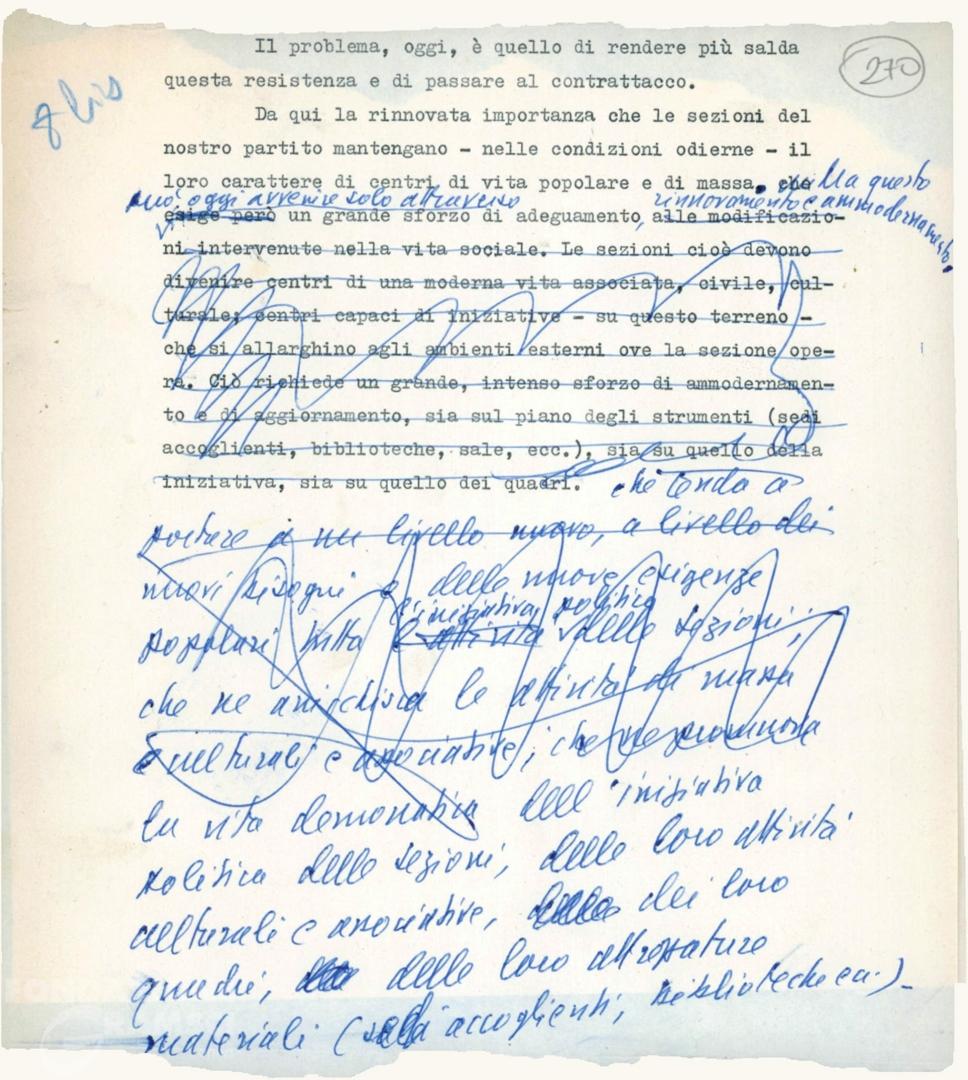 Il problema, oggi, è quello di rendere più salda
270
questa resistenza e di passare al contrattacco.
8 bis
Da qui la rinnovata importanza che le sezioni del
nostro partito mantengano - nelle condizioni odierne - il
loro carattere di centri di vita popolare e di massa. che Ma questo
può oggi avvenire solo attraverso rinnovamento e ammodernamento.
esige però un grande sforzo di adeguamento, alle modificazio-
ni intervenute nella vita sociale. Le sezioni cioè devono
divenire centri di una moderna vita associata, civile, cul-
turale; centri capaci di iniziative - su questo terreno -
che si allarghino agli ambienti esterni ove la sezione ope-
ra. Ciò richiede un grande, intenso sforzo di ammodernamen-
to e di aggiornamento, sia sul piano degli strumenti (sedi
accoglienti, biblioteche, sale, ecc.), sia su quello della
iniziativa, sia su quello dei quadri. che tenda a
portare a un livello nuovo, a livello dei
nuovi bisogni e delle nuove esigenze
l'iniziativa politica
popolari tutta l'attività delle sezioni;
che ne arricchisca le attività di massa
culturali e associative; che ne promuova
la vita democratica dell'iniziativa
politica delle sezioni, delle loro attività
culturali e associative, dei loro
quadri, delle loro attrezzature
materiali (sedi accoglienti, biblioteche ecc.)-